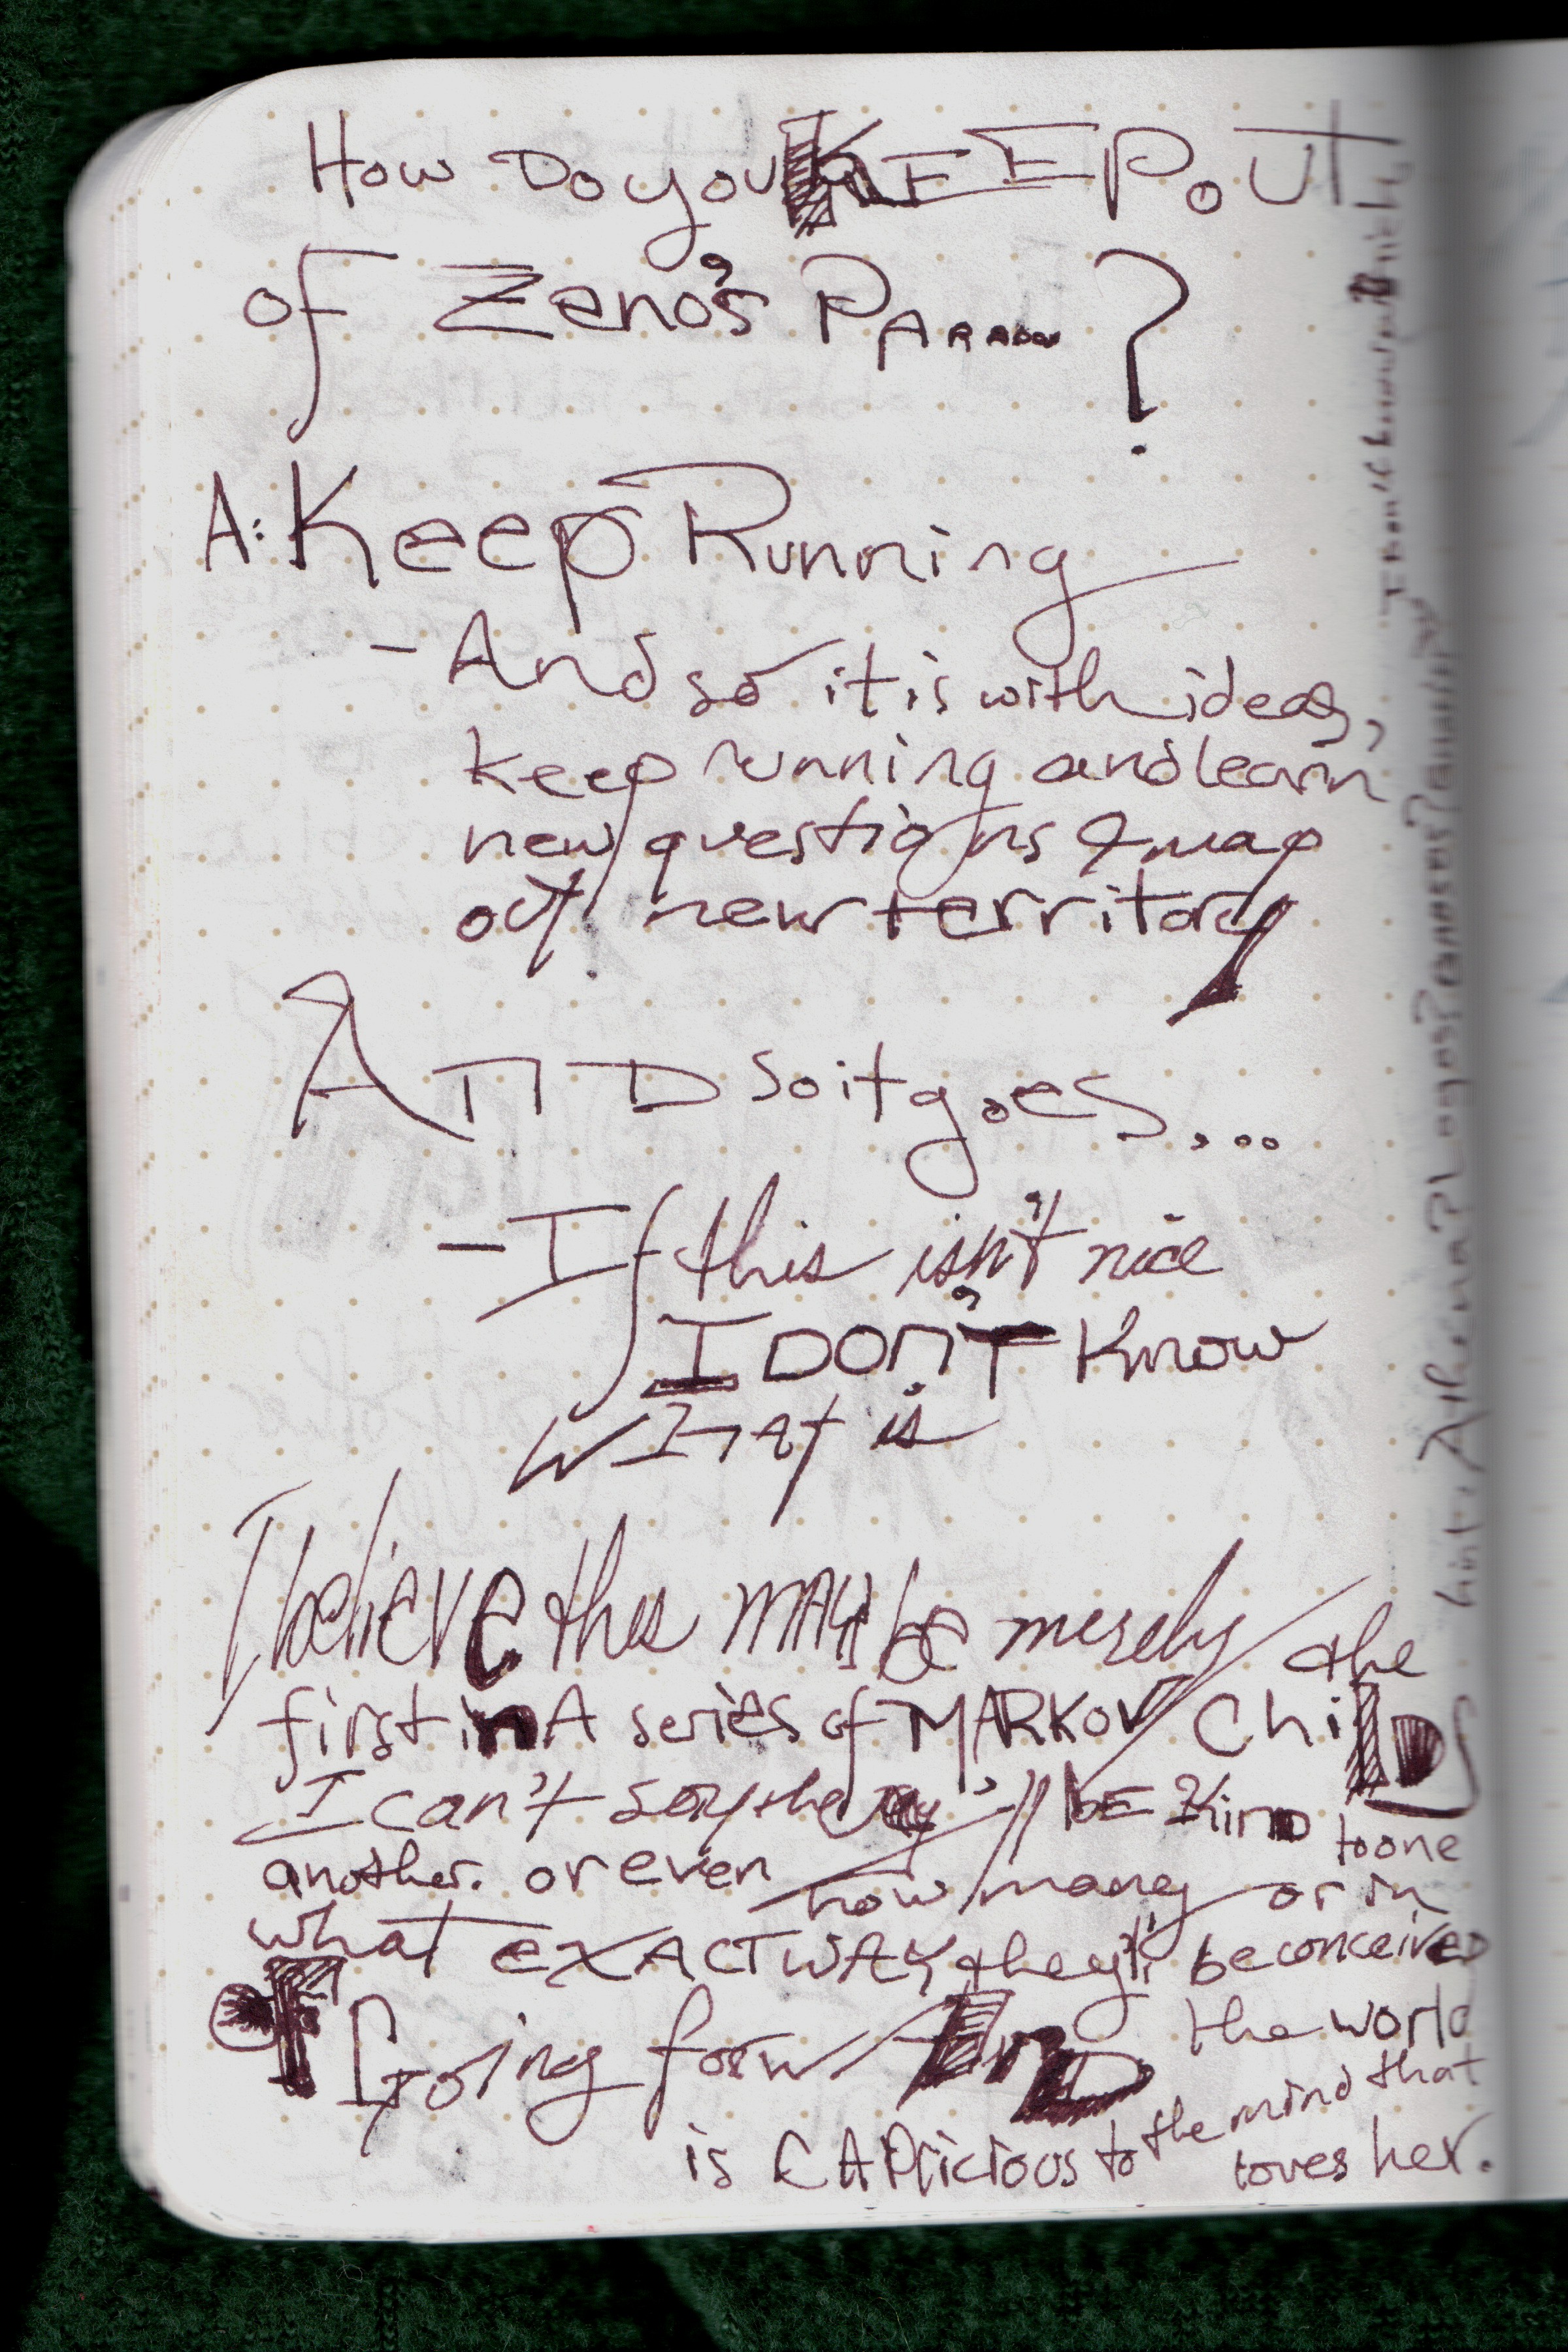 How Do you KEEP OUT
of Zeno's PARADOX ?
A: Keep Running
- And so it is with ideas,
keep running and learn
new questions & map
out new territory
AND so it goes...
- If this isn't nice
I DON'T know
WHAT is
I believe this MAY be merely the
first in A series of MARKOV ChilDs
I can't say they'll bE Kind to one
another. or even how many or in
what EXACT WAY they'll be conceived
Going forward the world
is CAPricious to the mind that
loves her.
I don't know which,
hint, Athena? Logos?